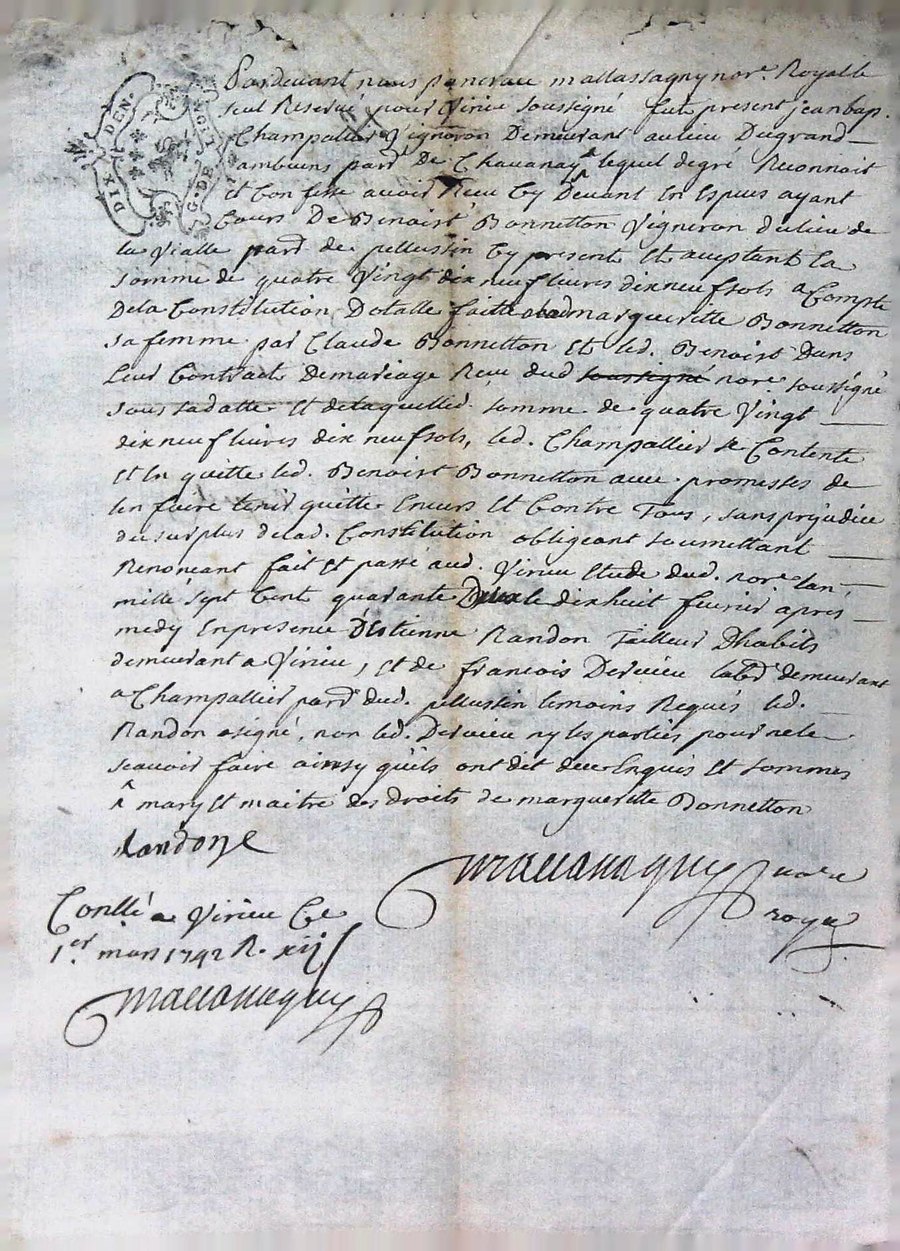 DIX DEN.
G. DE LION
Pardevant nous pancrace mallassagny nore. Royal le
seul Reservé pour Virieu soussigné fut present jean bap.
Champallier ^ Vigneron Demeurant au lieu Du grand
ambuens parr. De Chavanay lequel de gré Reconnoit
et Confesse avoir Reçu Cy Devant En Especes ayant
Cours De Benoist Bonnetton Vigneron du lieu de
la Vialle parr. de pellussin Cy present Et aceptant la
somme de quatre Vingt dix neuf livres dix neuf sols a Compte
De la Constitution Dotalle faitte a lad margueritte Bonnetton
sa femme par Claude Bonnetton Et led. Benoist Dans
Leur Contract De mariage Reçu dud soussigné nore. soussigné
sous sa datte Et de laquelle d. somme de quatre Vingt
dix neuf livres dix neuf sols, led. Champallier se Contente
Et En quitte led. Benoist Bonnetton avec promesses de
l'en faire tenir quitte Envers Et Contre Tous, sans prejudice
du surplus de lad. Constitution obligeant soumettant
Renonçant fait Et passé aud. Virieu Etude dud. nore. lan
mille sept Cent quarante Deux le dix huit fevrier apres
medy En presence D'Estienne Randon Tailleur D'habits
demeurant a Virieu, Et de francois Dervieu labr. demeurant
a Champallier parr. dud. pellussin temoins Requis led.
Randon a signé, non led. Dervieu ny les parties pour ne le
scavoir faire ainsy qu'ils ont dit de ce Enquis Et sommes
^ mary Et maitre des droits de margueritte Bonnetton
Randon
Mallassagny nore
royal
Conllé a Virieu Ce
1er. mars 1742 R. xij s
Mallassagny